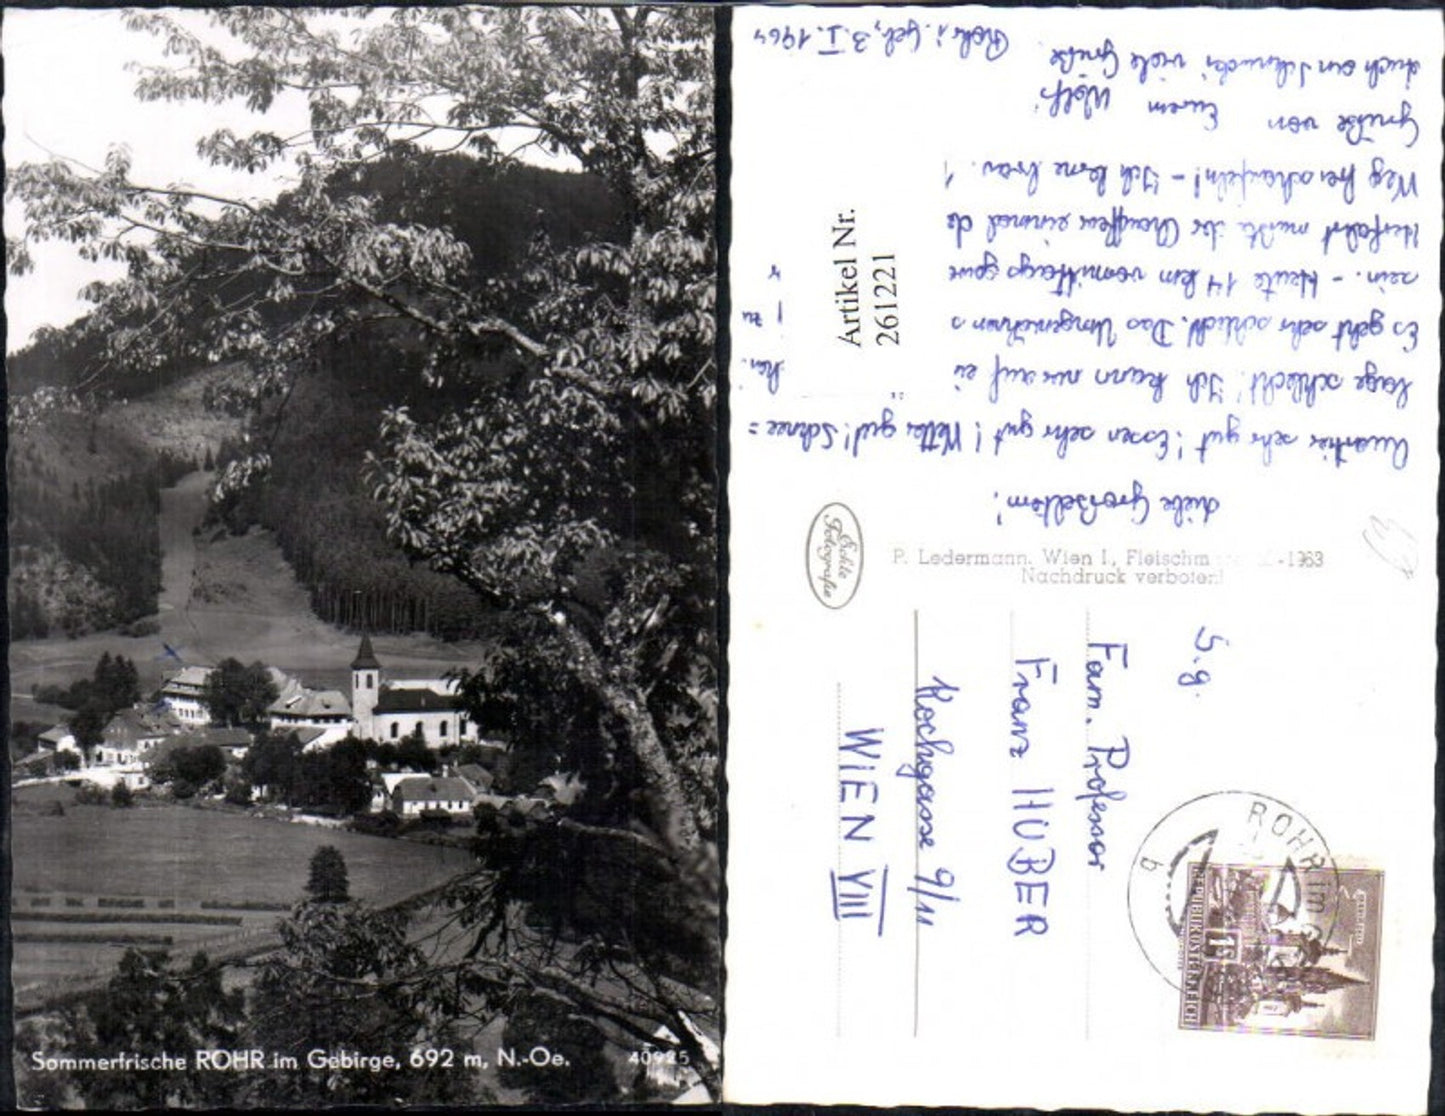 Sommerfrische ROHR im Gebirge, 692 m, N.-Oe. 40925
Rohr i. Geb., 3. I. 1964
Liebe Großeltern!
Quartier sehr gut! Essen sehr gut! Wetter gut! Schnee=
lage schlecht! Ich kann nur auf ei
Es geht sehr schlecht. Das Ungenehms
sein. - Heute 14 km vormittags
Herfahrt mußte der Chauffeur einmal de
Weg freischaufeln! - Ich lerne brav!
Grüße von Eurem Wolfi
Auch an Schnucki viele Grüße.
Artikel Nr.
261221
Echte
Fotografie
P. Ledermann, Wien I., Fleischm -1963
Nachdruck verboten!
S.g.
Fam. Professor
Franz HUBER
Kochgasse 9/11
WIEN VIII
ROHR IM
REPUBLIK ÖSTERREICH